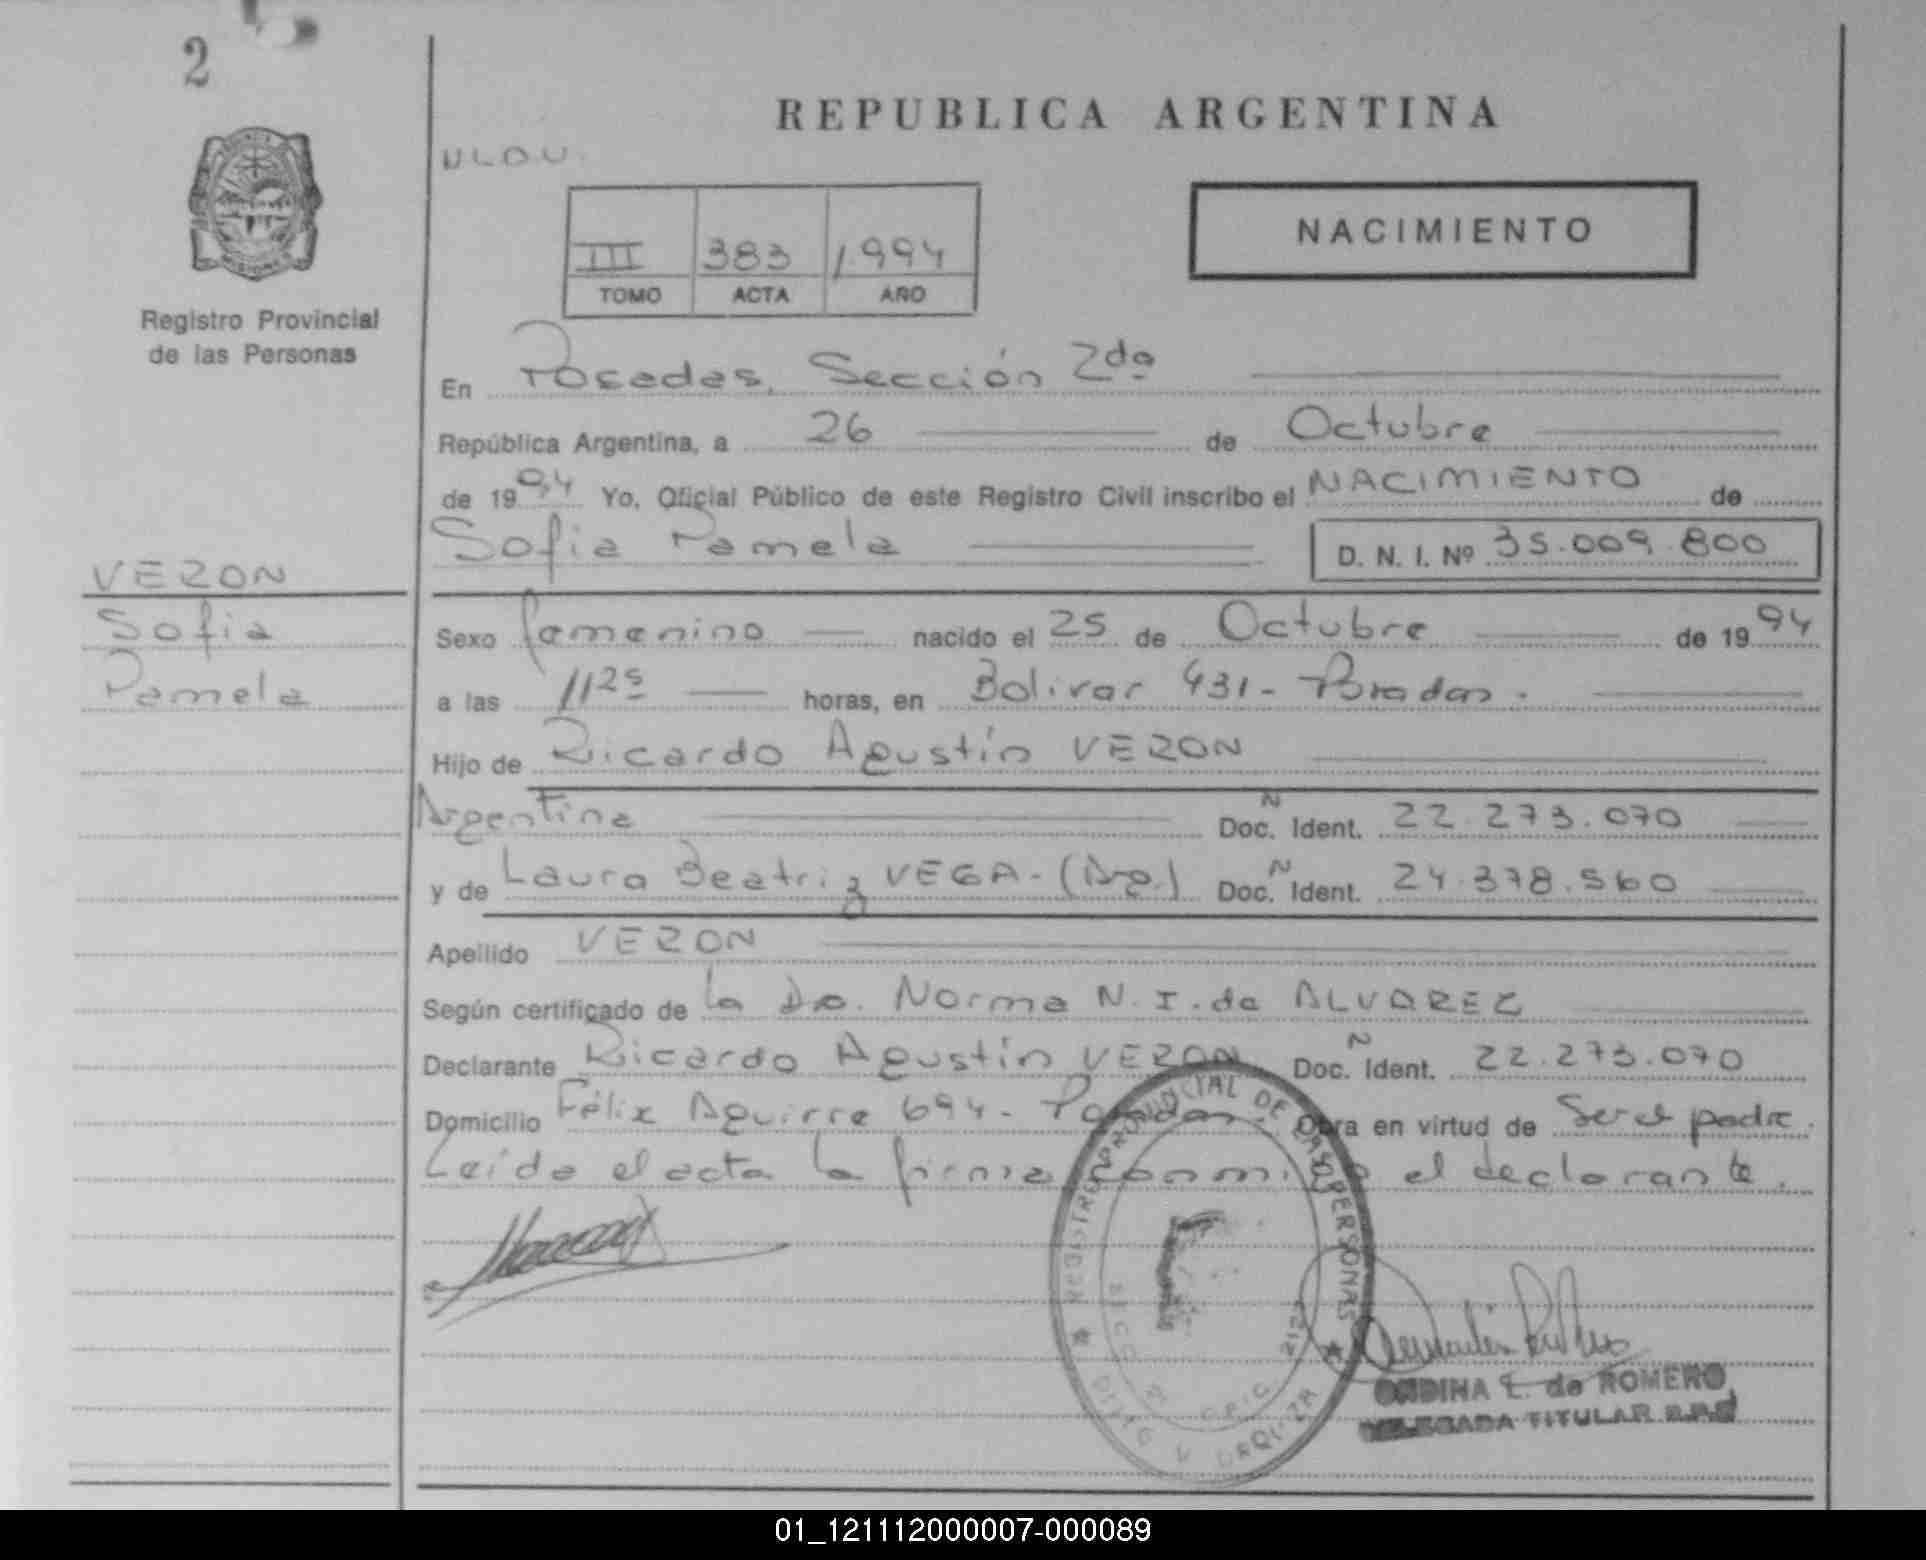 2
REPUBLICA ARGENTINA
N.L.D.U.
NACIMIENTO
III 383 1.994
TOMO ACTA AÑO
Registro Provincial
de las Personas
En Posadas, Sección 2da
República Argentina, a 26 de Octubre
de 1994 Yo, Oficial Público de este Registro Civil inscribo el NACIMIENTO de
Sofia Pamela D. N. I. Nº 35.009.800
VEZON
Sofia
Pamela
Sexo femenino nacido el 25 de Octubre de 1994
a las 11 25 horas, en Bolivar 431 - Posadas.
Hijo de Ricardo Agustín VEZON
Argentina Doc. N Ident. 22.273.070
y de Laura Beatriz VEGA - (Arg.) Doc. N Ident. 24.378.560
Apellido VEZON
Según certificado de la Dra. Norma N. I. de ALVAREZ
Declarante Ricardo Agustín VEZON Doc. N Ident. 22.273.070
Domicilio Félix Aguirre 694 - Posadas. Obra en virtud de Ser el padre.
Leída el acta la firma conmigo el declarante.
REGISTRO PROVINCIAL DE LAS PERSONAS
ONDINA E. de ROMERO
DELEGADA TITULAR R.P.P.
01_121112000007-000089